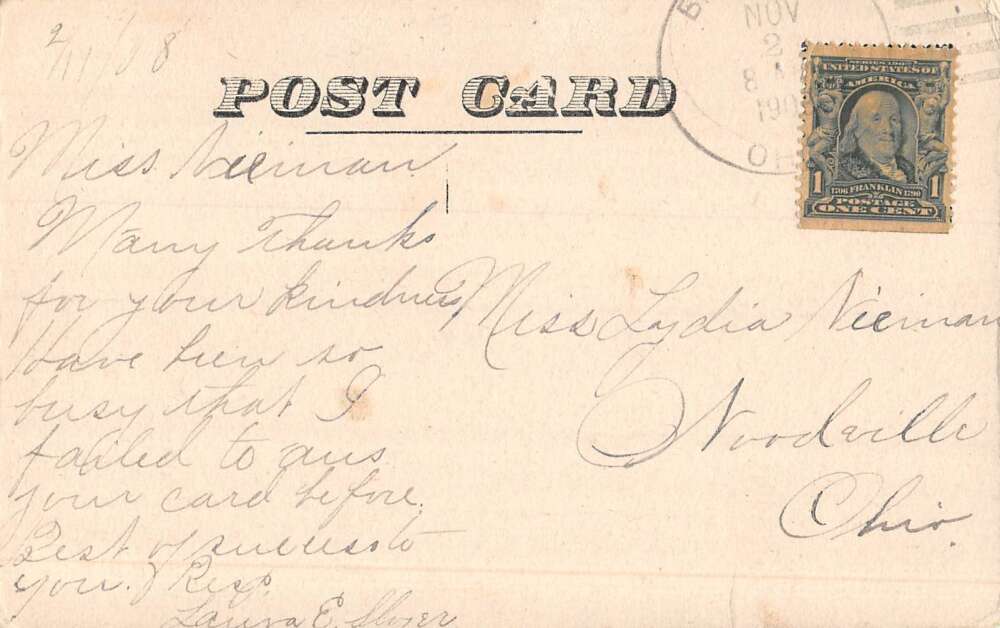 2/11/08
POST CARD
NOV
2
8 A
190
OH
SERIES 1902
UNITED STATES OF
AMERICA
1 1706 FRANKLIN 1790 1
POSTAGE
ONE CENT
Miss. Nieman.
Many Thanks
for your kindness
Have been so
busy that I
failed to ans
your card before.
Best of success to
you. Resp.
Laura E.
Miss Lydia Nieman
Woodville
Ohio.